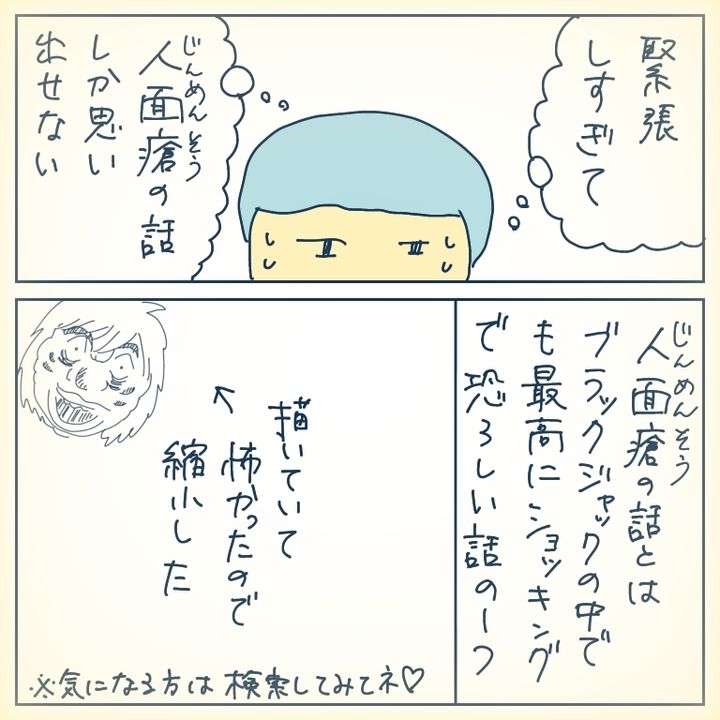 緊張
しすぎて
人面瘡の話
じんめんそう
しか思い
出せない
人面瘡の話とは
じんめんそう
ブラックジャックの中で
も最高にショッキング
で恐ろしい話の一つ
描いていて
怖かったので
縮小した
※気になる方は検索してみてネ♡